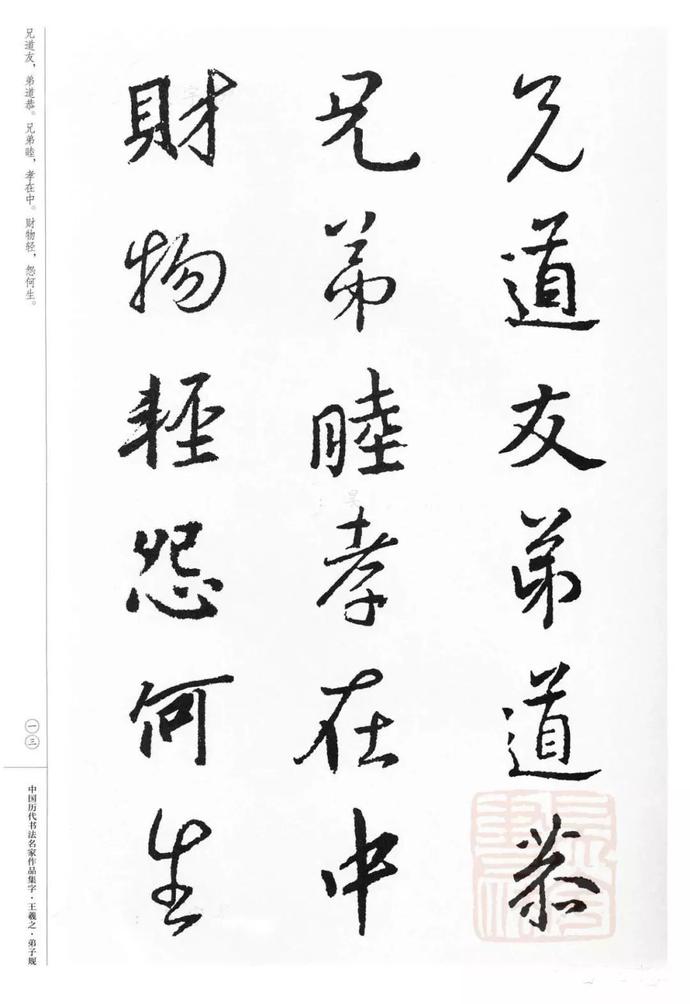 兄道友弟道恭
兄弟睦孝在中
財物輕怨何生
兄道友，弟道恭。兄弟睦，孝在中。财物轻，怨何生。
一三
中国历代书法名家作品集字·王羲之·弟子规